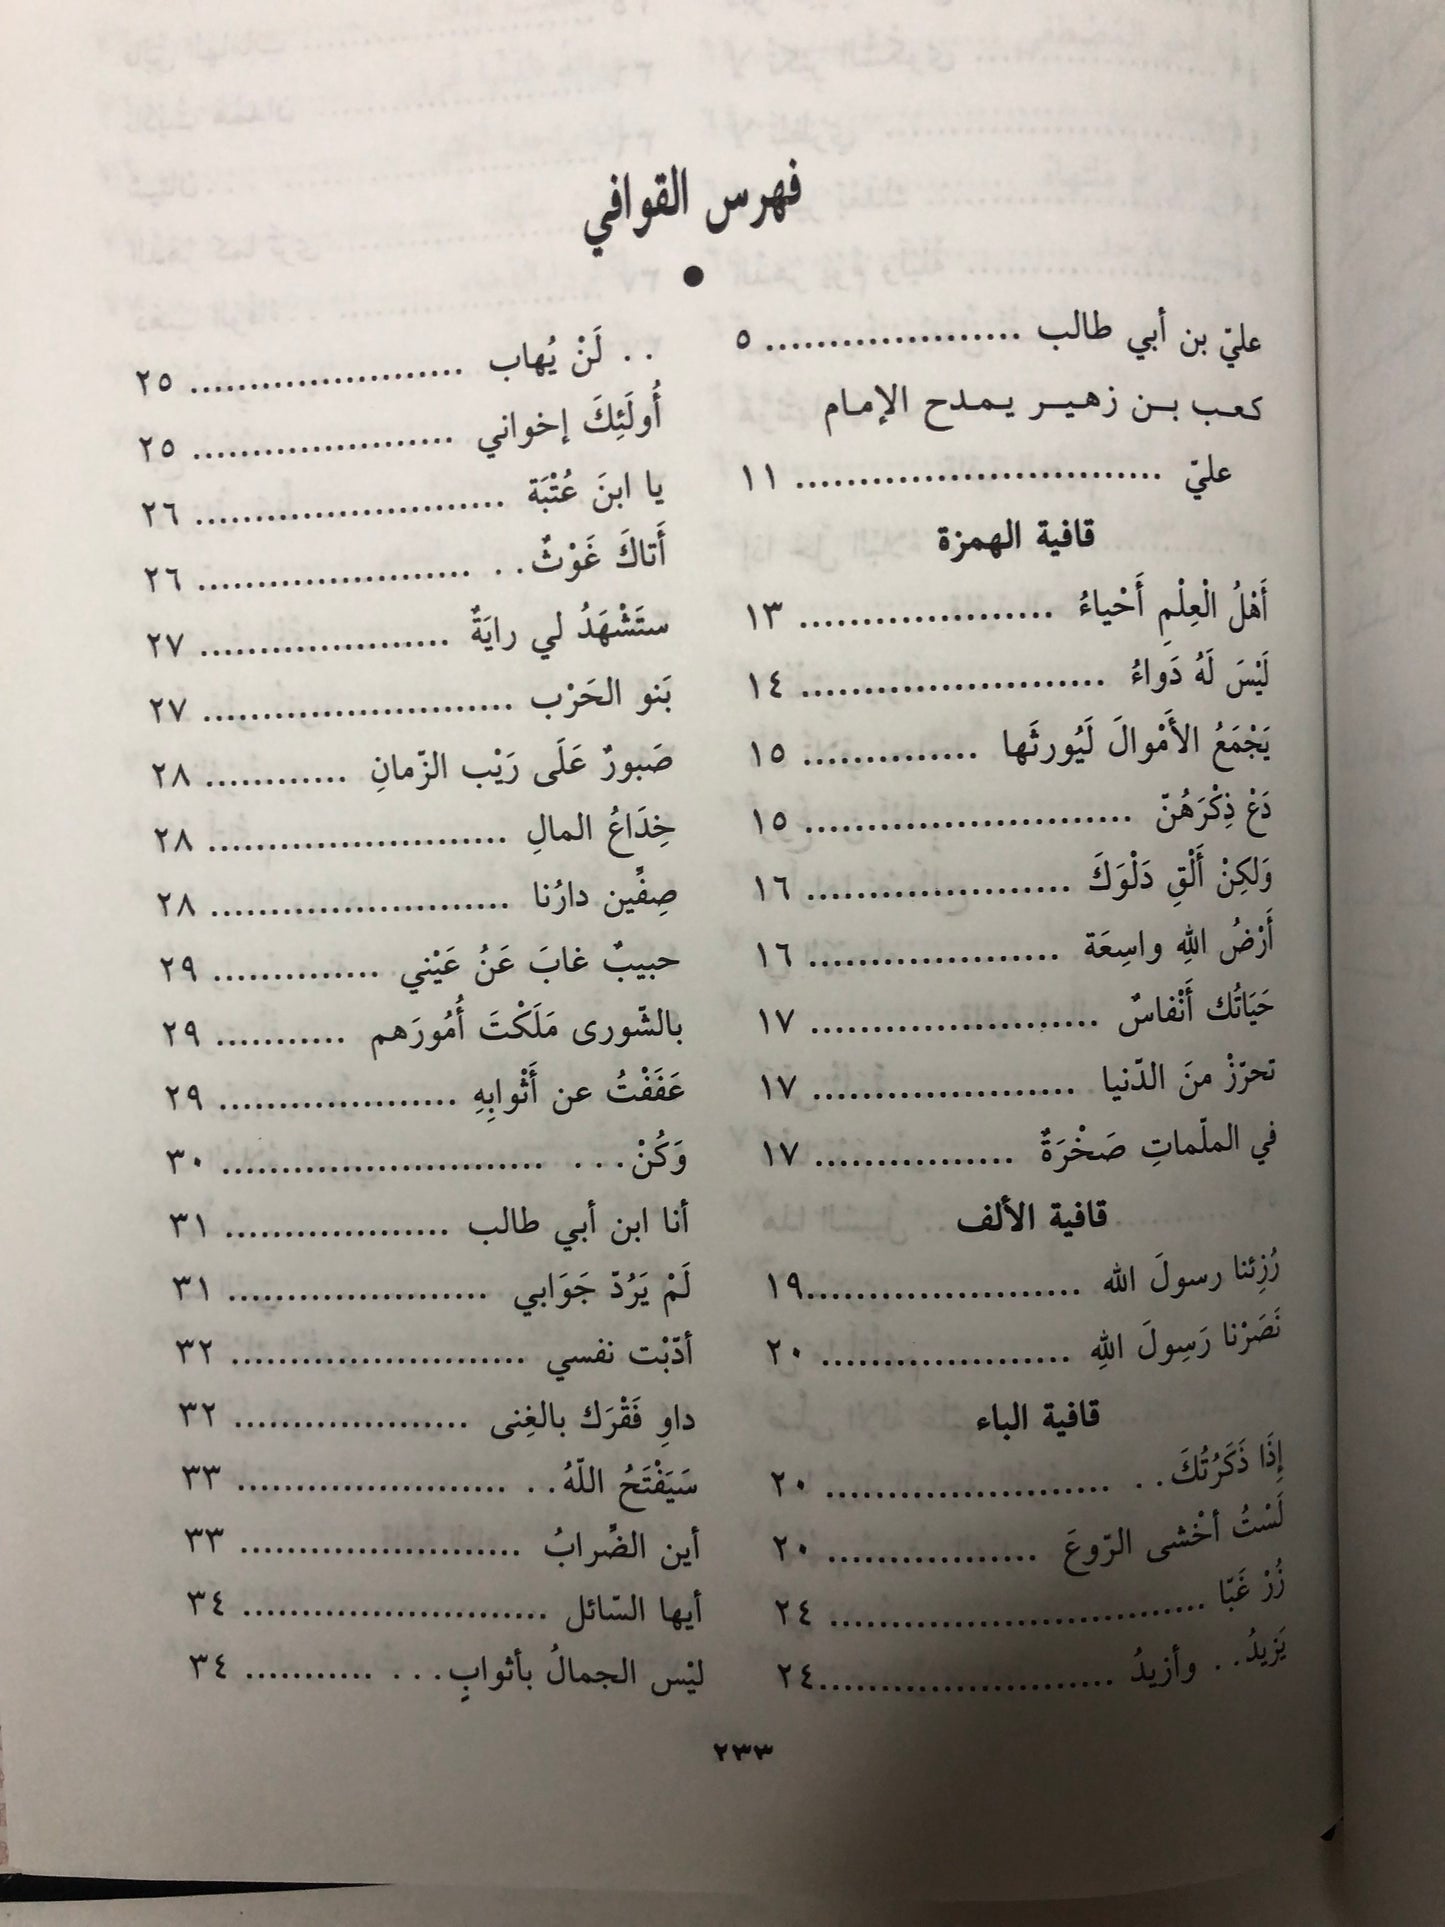 فهرس القوافي
عليّ بن أبي طالب ..................... ٥
كعب بن زهير يمدح الإمام
عليّ ............................. ١١
قافية الهمزة
أَهْلُ الْعِلْمِ أَحْياءُ ..................... ١٣
لَيْسَ لَهُ دَواءُ ......................... ١٤
يَجْمَعُ الأَمْوالَ لَيُورثَها .............. ١٥
دَعْ ذِكْرَهُنّ ........................... ١٥
وَلكِنْ أَلْقِ دَلْوَكَ ...................... ١٦
أَرْضُ اللهِ واسِعَة ..................... ١٦
حَيَاتُك أَنْفاسٌ ........................ ١٧
تحرّزْ منَ الدّنيا ...................... ١٧
في الملّماتِ صَخْرَةٌ ................. ١٧
قافية الألف
رُزِئنا رسولَ الله .......................١٩
نَصَرْنا رَسِولَ اللهِ ..................... ٢٠
قافية الباء
إِذَا ذَكَرُتُكَ. . ........................ ٢٠
لَسْتُ أخْشى الرّوعَ .................. ٢٠
زُرْ غَبّا ................................ ٢٤
يَزيدُ. . وأزيدُ .........................٢٤
. . لَنْ يُهاب ....................... ٢٥
أُولَئِكَ إخواني ...................... ٢٥
يا ابنَ عُتْبَة .......................... ٢٦
أَتاكَ غَوْثٌ. . ....................... ٢٦
ستَشْهَدُ لي رايَةٌ ..................... ٢٧
بَنو الحَرْب .......................... ٢٧
صَبورٌ عَلَى رَيْب الزّمانِ ............ ٢٨
خِدَاعُ المالِ ......................... ٢٨
صِفِّين دارُنا ......................... ٢٨
حبيبٌ غابَ عَنُ عَيْني .............. ٢٩
بالشّورى مَلَكْتَ أُمُورَهم ........... ٢٩
عَفَفْتُ عن أَثْوابِهِ .................... ٢٩
وَكُنْ. . . ........................... ٣٠
أنا ابن أبي طالب ................... ٣١
لَمْ يَرُدّ جَوَابي ...................... ٣١
أدّبْت نفسي ......................... ٣٢
داوِ فَقْرَك بالغِنى .................... ٣٢
سَيَفْتَحُ اللّهُ. . ....................... ٣٣
أين الضِّرابُ ........................ ٣٣
أيها السّائل .......................... ٣٤
ليْس الجمالُ بأثوابٍ. . . ........... ٣٤
٢٣٣